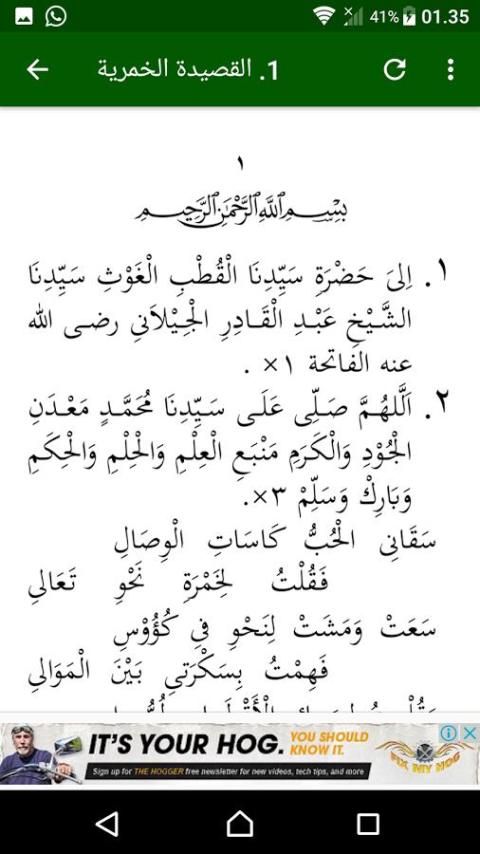 41% 01.35
1. القصيدة الخمرية
١
بِسْمِ اللَّهِ الرَّحْمَنِ الرَّحِيمِ
١. اِلىَ حَضْرَةِ سَيِّدِنَا الْقُطْبِ الْغَوْثِ سَيِّدِنَا
الشَّيْخِ عَبْدِ الْقَادِرِ الْجِيْلَانِي رضى الله
عنه الفاتحة ١× .
٢. اَللّٰهُمَّ صَلِّى عَلَى سَيِّدِنَا مُحَمَّدٍ مَعْدَنِ
الْجُوْدِ وَالْكَرَمِ مَنْبَعِ الْعِلْمِ وَالْحِلْمِ وَالْحِكَمِ
وَبَارِكْ وَسَلِّمْ ٣×.
سَقَانِى الْحُبُّ كَاسَاتِ الْوِصَالِ
فَقُلْتُ لِخَمْرَةِ نَحْوِ تَعَالِى
سَعَتْ وَمَشَتْ لِنَحْوِ فِى كُؤُوْسِ
فَهِمْتُ بِسَكْرَتِي بَيْنَ الْمَوَالِى
IT'S YOUR HOG. YOU SHOULD KNOW IT.
Sign up for THE HOGGER free newsletter for new videos, tech tips, and more
FIX MY HOG